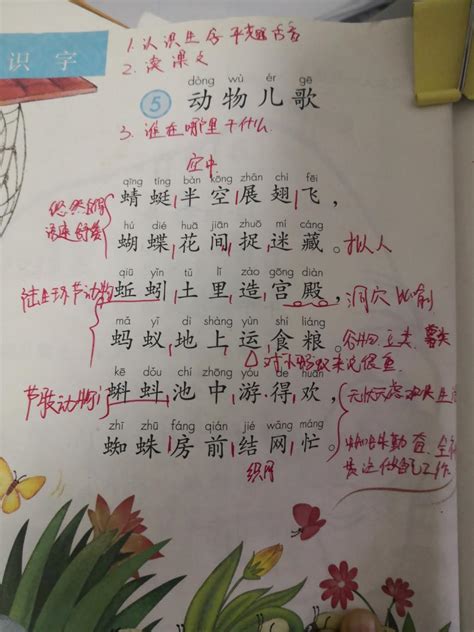 1. 认识生字 平翘舌音
识字
2. 读课文
dòng wù ér gē
5 动物儿歌
3. 谁在哪里干什么
空中
qīng tíng bàn kōng zhǎn chì fēi
蜻蜓半空展翅飞，
悠然自得
hú dié huā jiān zhuō mí cáng
蝴蝶花间捉迷藏。拟人
qiū yǐn tǔ lǐ zào gōng diàn
蚯蚓土里造宫殿，洞穴 比喻
mā yǐ dì shàng yùn shí liáng
蚂蚁地上运食粮。谷物 豆类 薯类
kē dǒu chí zhōng yóu de huān
蝌蚪池中游得欢，
zhī zhū fáng qián jié wǎng máng
蜘蛛房前结网忙。
织网